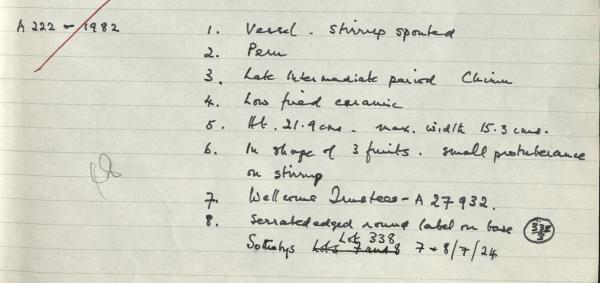 A 222 - 1982
1. Vessel. Stirrup spouted
2. Peru
3. Late Intermediate period Chimu
4. Low fired ceramic
5. Ht. 21.9 cms. max. width 15.3 cms.
6. In shape of 3 fruits. small protuberance
on stirrup
7. Wellcome Trustees - A 27932.
8. Serrated edged round label on base 338
Lot 338
Sothebys Lots 7 and 8 7 + 8/7/24